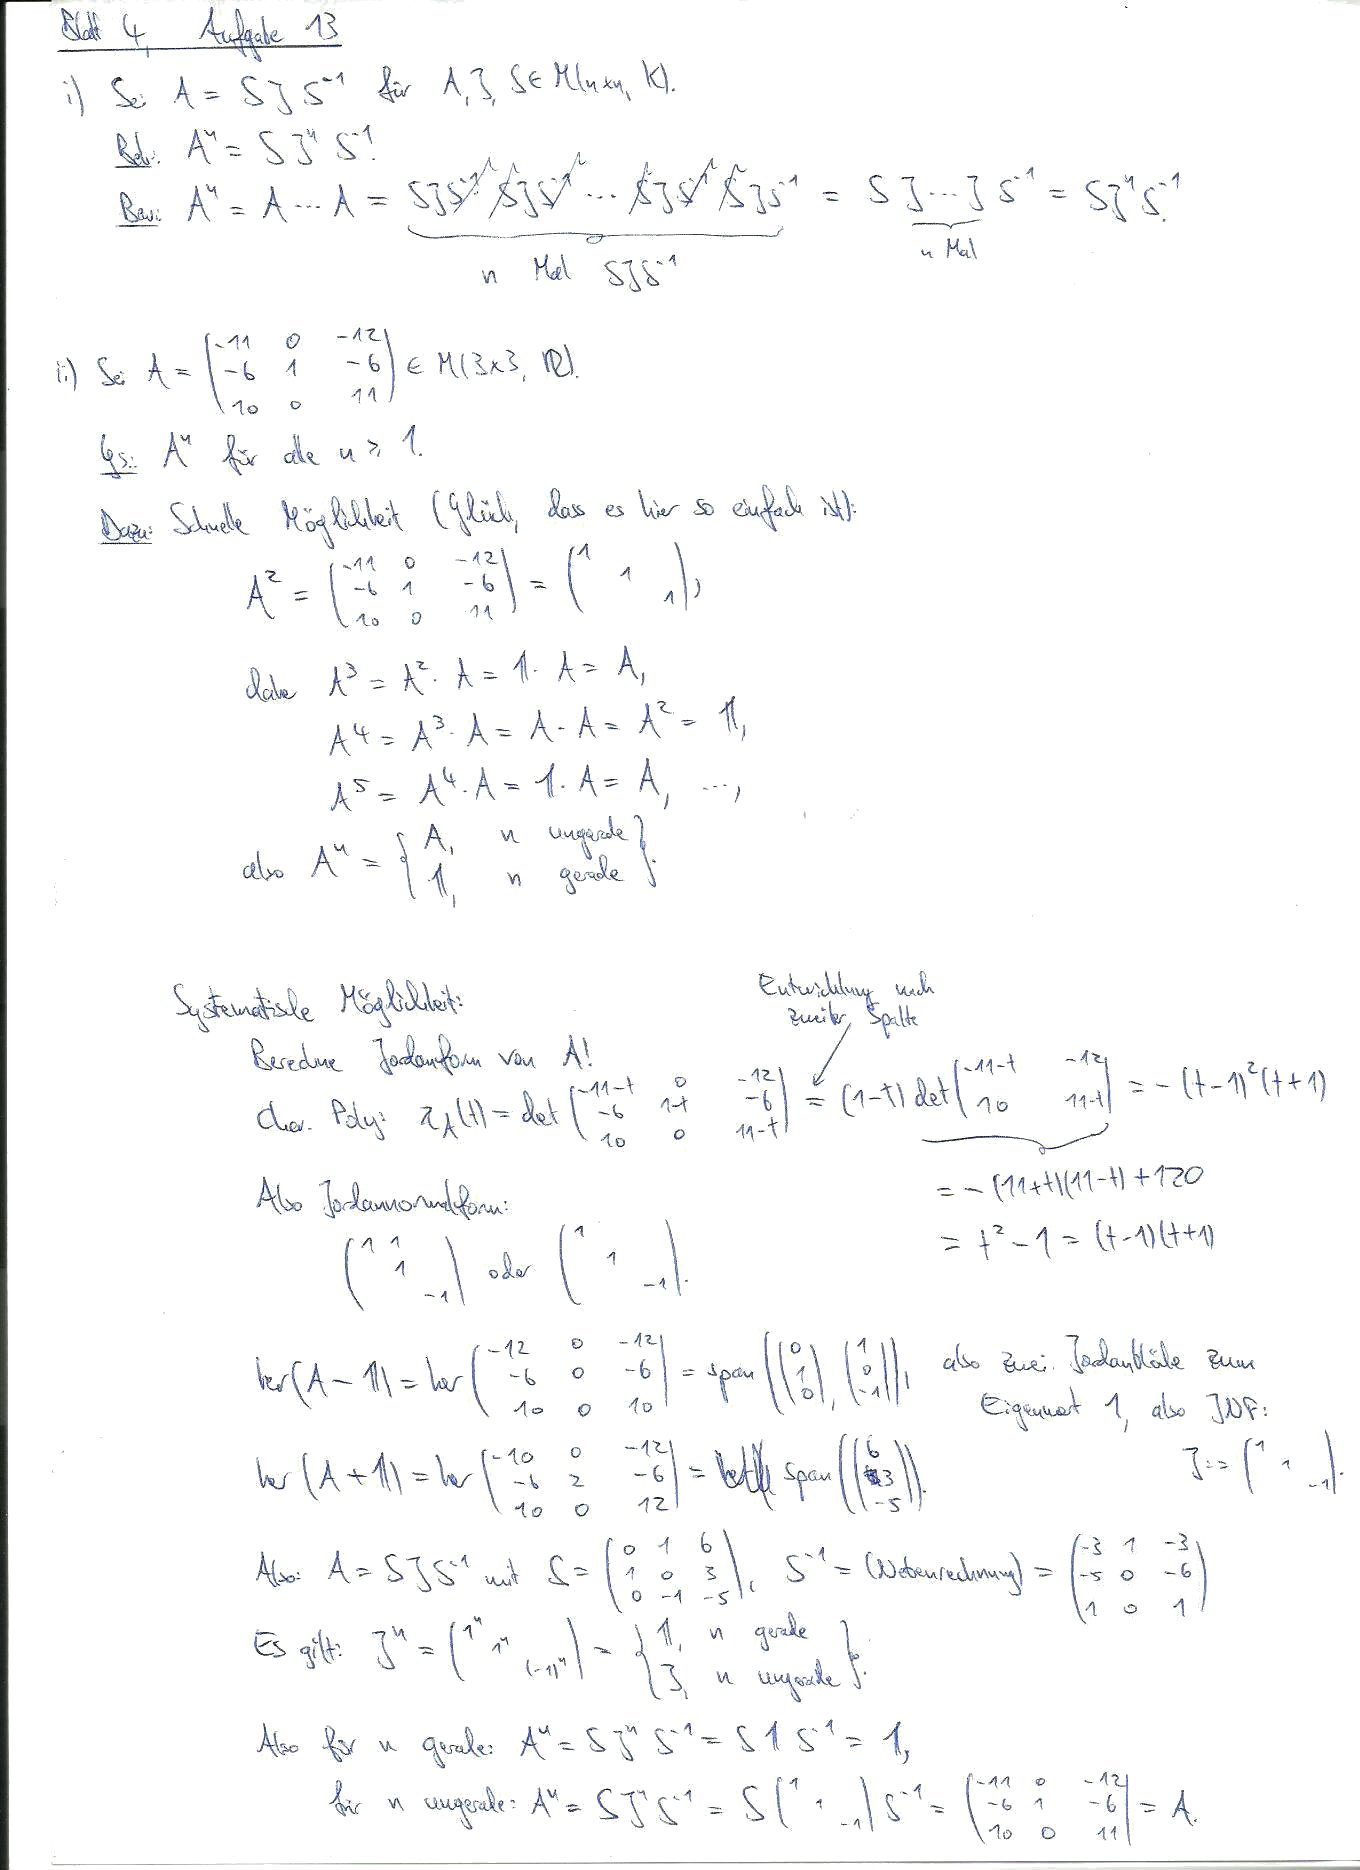 Blatt 4, Aufgabe 13
i) Sei A = S J S⁻¹ für A, J, S ∈ M(n×n, K).
Beh.: Aⁿ = S Jⁿ S⁻¹.
Bew.: Aⁿ = A ⋯ A = SJS⁻¹ SJS⁻¹ ⋯ SJS⁻¹ SJS⁻¹ = S J⋯J S⁻¹ = SJⁿS⁻¹.
n Mal SJS⁻¹ n Mal
ii) Sei A = (-11 0 -12; -6 1 -6; 10 0 11) ∈ M(3×3, ℝ).
Ges.: Aⁿ für alle n ≥ 1.
Dazu: Schnelle Möglichkeit (Glück, dass es hier so einfach ist):
A² = (-11 0 -12; -6 1 -6; 10 0 11) = (1 1 1),
daher A³ = A² · A = 𝟙 · A = A,
A⁴ = A³ · A = A · A = A² = 𝟙,
A⁵ = A⁴ · A = 𝟙 · A = A, ...,
also Aⁿ = { A, n ungerade; 𝟙, n gerade }.
Systematische Möglichkeit:
Entwicklung nach zweiter Spalte
Berechne Jordanform von A!
Char. Poly: χ_A(t) = det (-11-t 0 -12; -6 1-t -6; 10 0 11-t) = (1-t) det (-11-t -12; 10 11-t) = -(t-1)²(t+1)
= -(11+t)(11-t) + 120
= t² - 1 = (t-1)(t+1)
Also Jordannormalform:
(1 1; 1; -1) oder (1; 1; -1).
ker(A - 𝟙) = ker (-12 0 -12; -6 0 -6; 10 0 10) = span((0; 1; 0), (1; 0; -1)), also zwei Jordanblöcke zum
Eigenwert 1, also JNF:
J := (1; 1; -1).
ker(A + 𝟙) = ker (-10 0 -12; -6 2 -6; 10 0 12) = span((6; 3; -5)).
Also: A = SJS⁻¹ mit S = (0 1 6; 1 0 3; 0 -1 -5), S⁻¹ = (Nebenrechnung) = (-3 1 -3; -5 0 -6; 1 0 1)
Es gilt: Jⁿ = (1ⁿ 1ⁿ (-1)ⁿ) = { 𝟙, n gerade; J, n ungerade }.
Also für n gerade: Aⁿ = S Jⁿ S⁻¹ = S 𝟙 S⁻¹ = 𝟙,
für n ungerade: Aⁿ = SJⁿS⁻¹ = S (1 1 -1) S⁻¹ = (-11 0 -12; -6 1 -6; 10 0 11) = A.